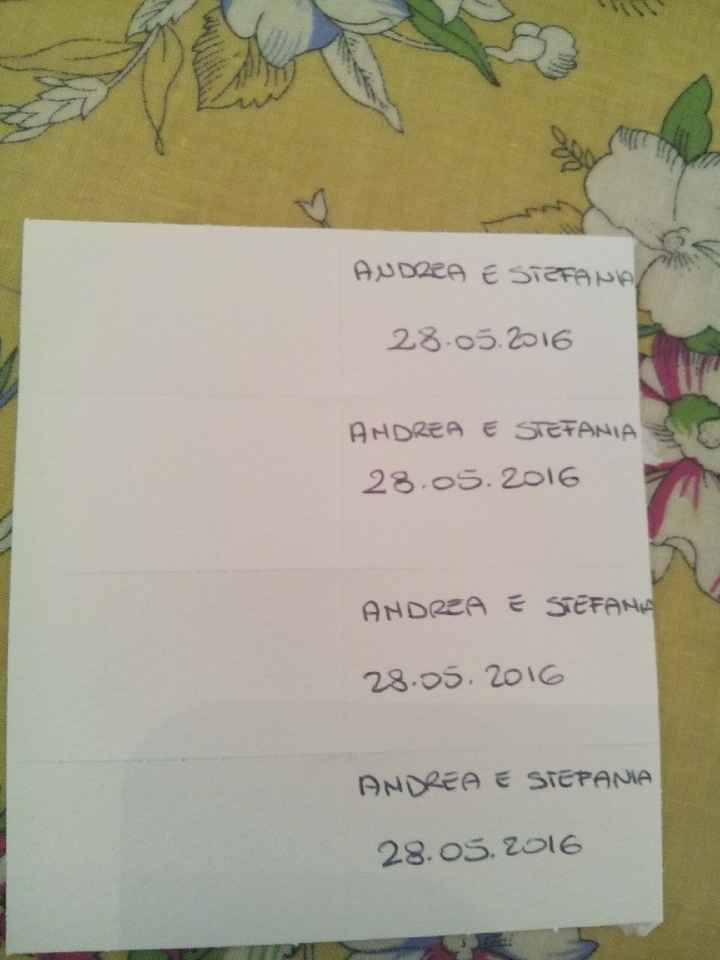 ANDREA E STEFANIA
28.05.2016
ANDREA E STEFANIA
28.05.2016
ANDREA E STEFANIA
28.05.2016
ANDREA E STEFANIA
28.05.2016